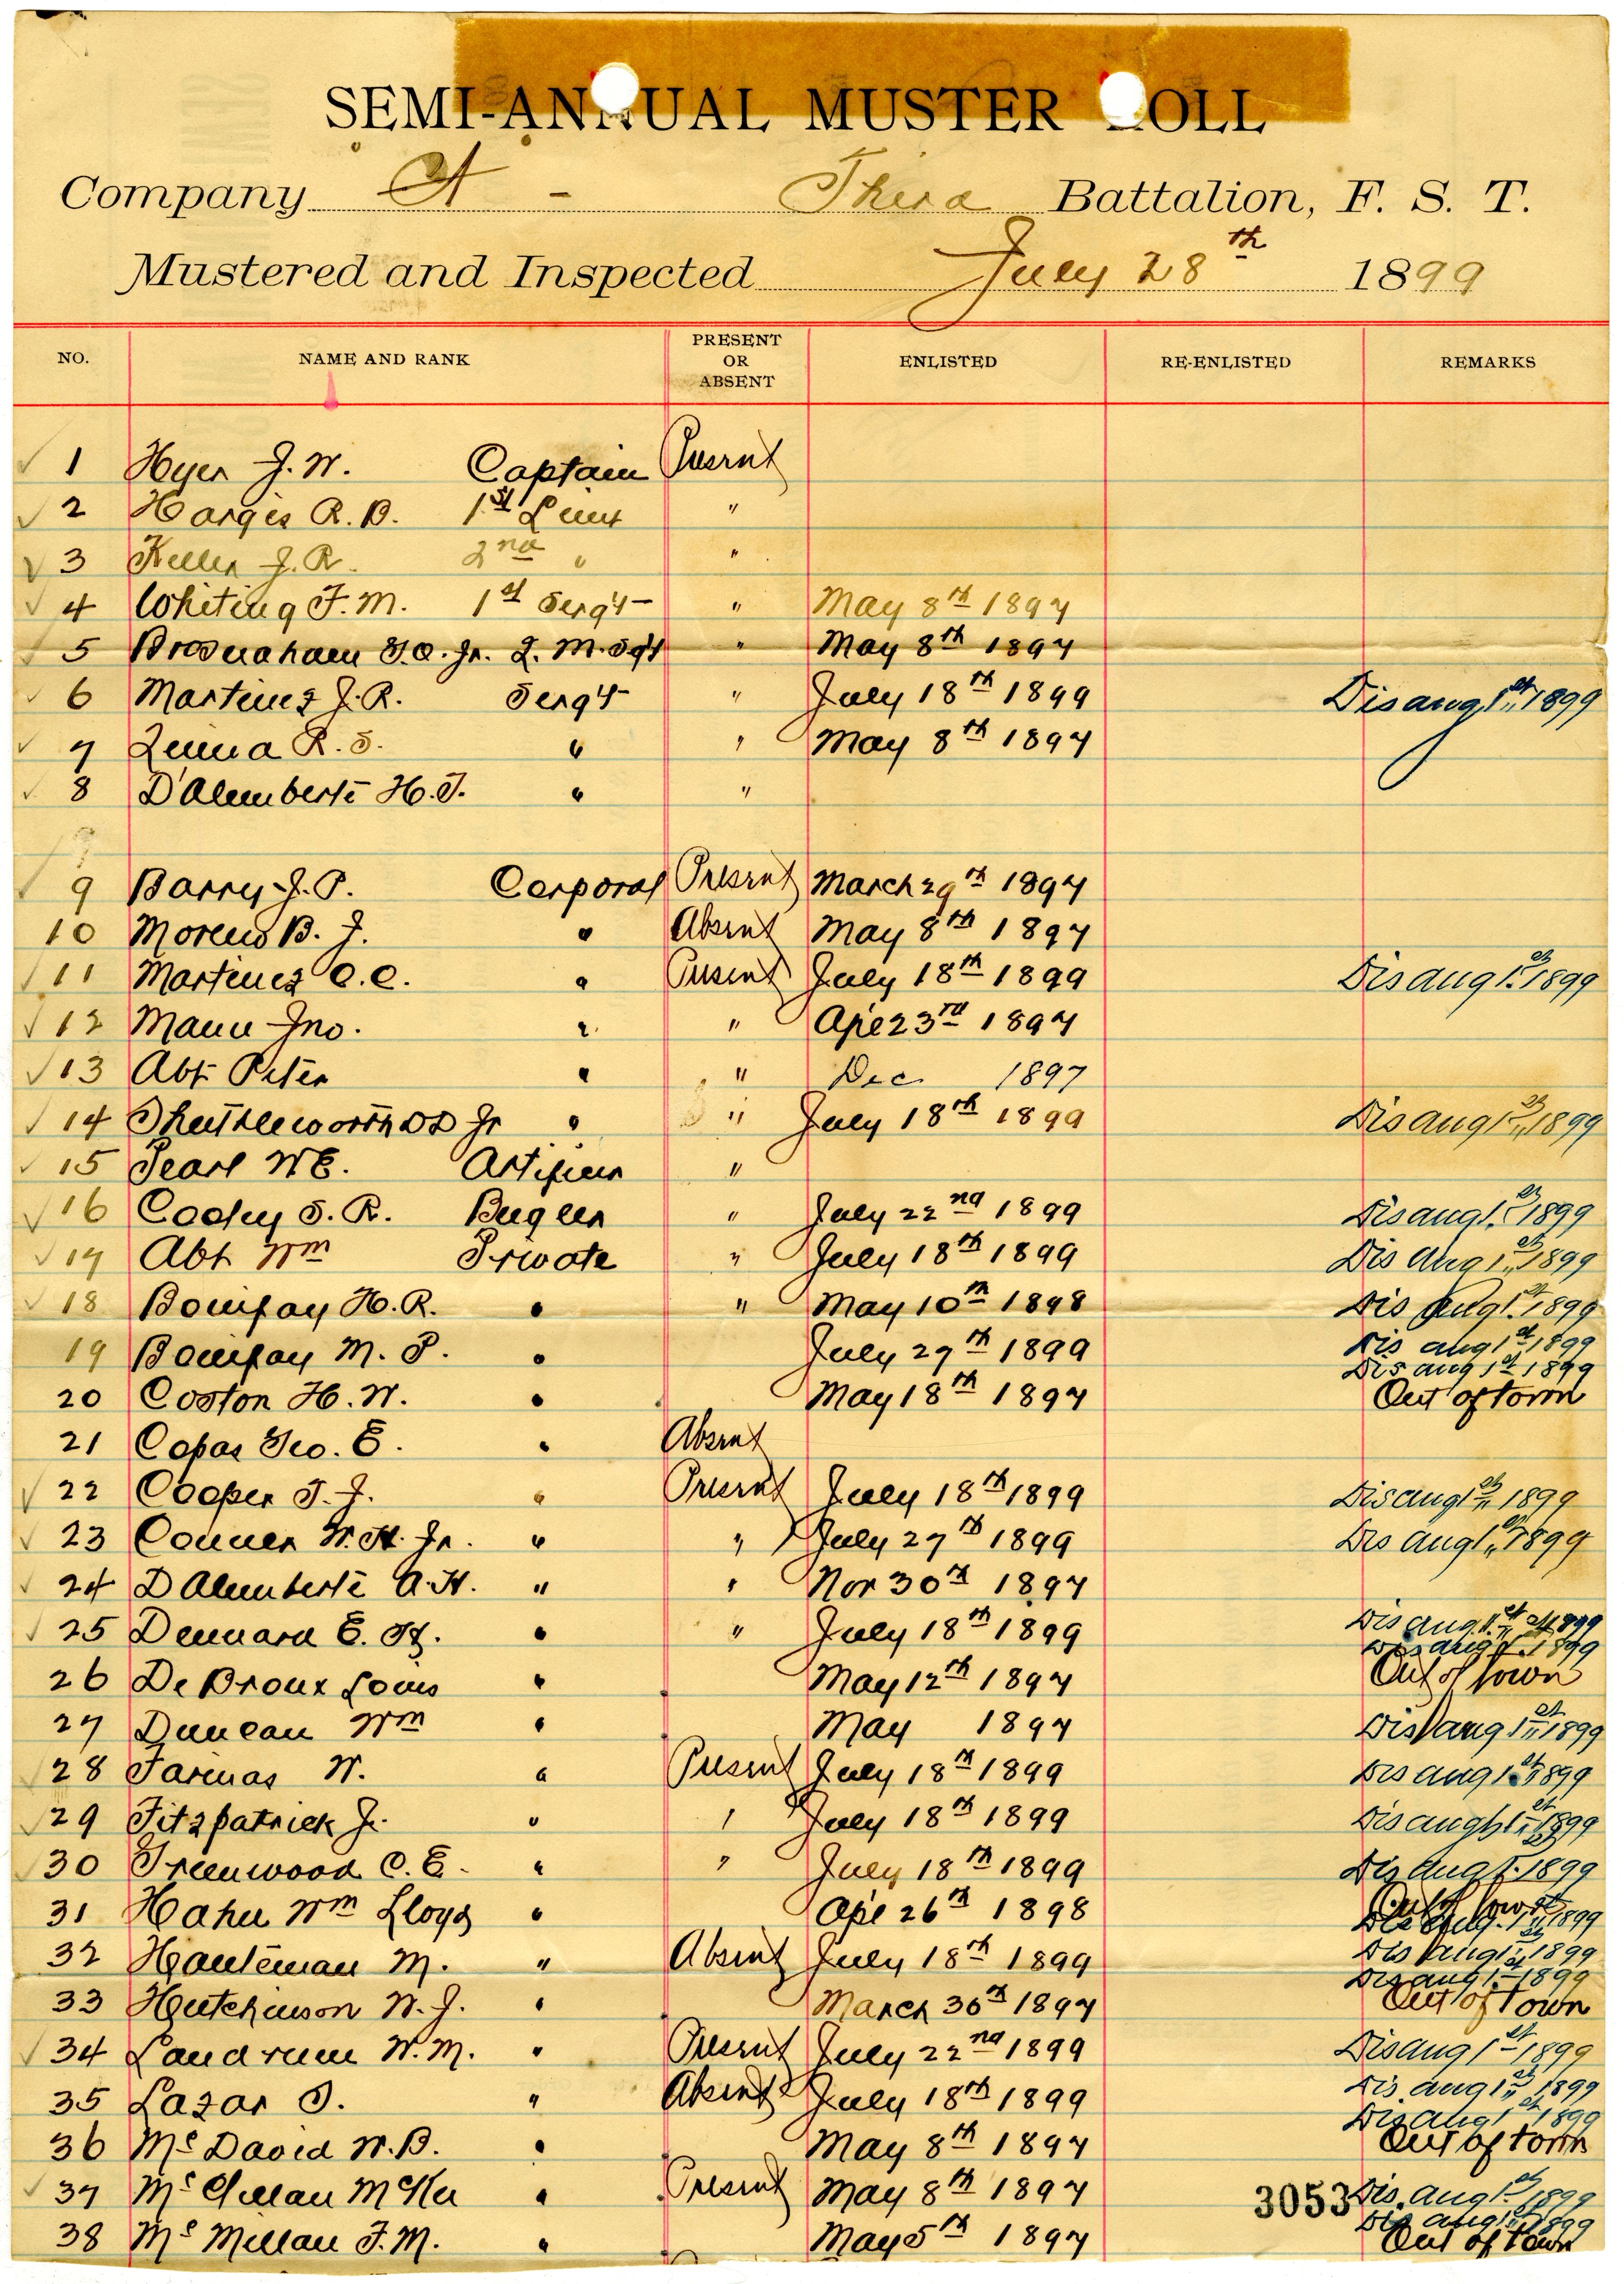 SEMI-ANNUAL MUSTER ROLL
Company A - Third Battalion, F. S. T.
Mustered and Inspected July 28th 1899
NO. NAME AND RANK PRESENT OR ABSENT ENLISTED RE-ENLISTED REMARKS
1 Hyer J. W. Captain Present
2 Hargis R. B. 1st Lieut "
3 Keller J. R. 2nd " "
4 Whiting F. M. 1st Serg't " May 8th 1897
5 Brosnaham Jr. Q. M. Sgt " May 8th 1897
6 Martinez J. R. Serg't " July 18th 1899 Dis aug 1st 1899
7 Quina R. S. " " May 8th 1897
8 D'Alemberte H. T. " "
9 Barry J. P. Corporal Present March 29th 1897
10 Moreno B. J. " Absent May 8th 1897
11 Martinez C. C. " Present July 18th 1899 Dis aug 1st 1899
12 Mann Jno. " " Ape 23rd 1897
13 Abt Peter " " Dec 1897
14 Shuttleworth Jr " " July 18th 1899 Dis aug 1st 1899
15 Pearl W E. Artificer "
16 Cooley S. R. Bugler " July 22nd 1899 Dis aug 1st 1899
17 Abt Wm Private " July 18th 1899 Dis Aug 1st 1899
18 Bonifay H. R. " " May 10th 1898 Dis Aug 1st 1899
19 Bonifay M. P. " July 27th 1899 Dis aug 1st 1899
Dis aug 1st 1899
20 Coston H. W. " May 18th 1897 Out of town
21 Copas Geo. E. " Absent
22 Cooper T. J. " Present July 18th 1899 Dis aug 1st 1899
23 Conner W. H. Jr. " " July 27th 1899 Dis aug 1st 1899
24 D Alemberte A. H. " " Nov 30th 1897
25 Dennard E. H. " " July 18th 1899 Dis aug 1st 1899
Dis aug 1st 1899
26 De Broux Louis " May 12th 1897 Out of town
27 Duncan Wm " May 1897 Dis aug 1st 1899
28 Farinas W. " Present July 18th 1899 Dis aug 1st 1899
29 Fitzpatrick J. " " July 18th 1899 Dis aug 1st 1899
30 Greenwood C. E. " " July 18th 1899 Dis aug 1st 1899
31 Hahn Wm Lloyd " Ape 26th 1898 Out of town
Dis Aug. 1st 1899
32 Hanteman M. " Absent July 18th 1899 Dis aug 1st 1899
Dis aug 1st 1899
33 Hutchinson W. J. " March 30th 1897 Out of town
34 Landrum W. M. " Present July 22nd 1899 Dis aug 1st 1899
35 Lazar S. " Absent July 18th 1899 Dis aug 1st 1899
Dis aug 1st 1899
36 Mc David W. B. " May 8th 1897 Out of town
37 Mc " Present May 8th 1897 3053 Dis. aug 1st 1899
Dis aug 1st 1899
38 Mc Millan F. M. " May 5th 1897 Out of town